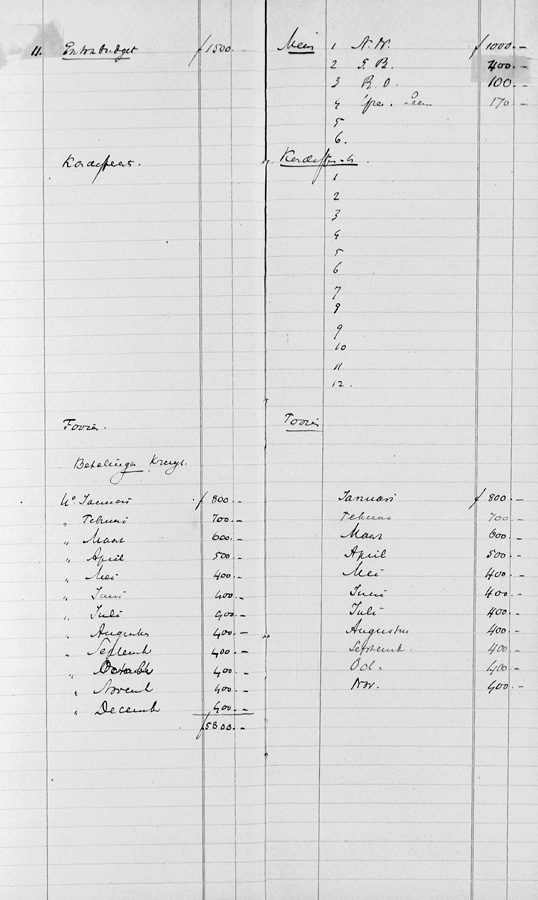 11. Extrabudget ƒ 1500.-
Kordefeest.
Toozie.
Betalingen Kreyt.
Uo Januari ƒ 800.-
„ Februari 700.-
„ Maart 600.-
„ April 500.-
„ Mei 400.-
„ Juni 400.-
„ Juli 400.-
„ Augustus 400.-
„ Septemb 400.-
„ Octob 400.-
„ Novemb 400.-
„ Decemb 400.-
ƒ5800.-
Meis 1 A. W. ƒ 1000.-
2 G. B. 400.-
3 B. O. 100.-
4 170.-
5
6.
1
2
3
4
5
6
7
8
9
10
11
12.
Toozie
Januari ƒ 800.-
Februari 700.-
Maart 600.-
April 500.-
Mei 400.-
Juni 400.-
Juli 400.-
Augustus 400.-
Septemb. 400.-
Oct. 400.-
Nov. 400.-